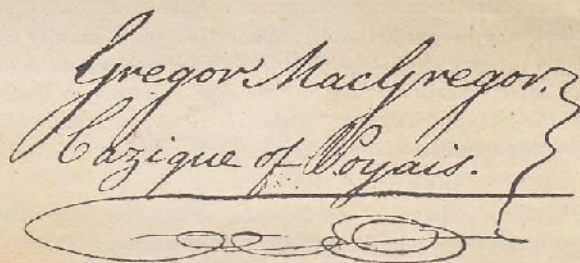 Gregor MacGregor.
Cazique of Poyais.